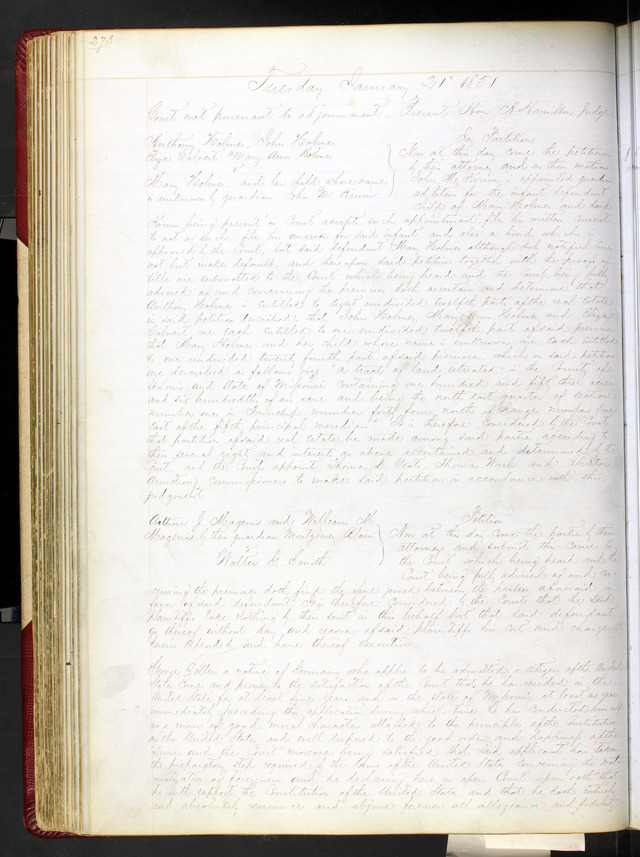 273
Tuesday January 21st 1851
Court met pursuant to adjournment. Present Hon A Hamilton Judge
Anthony Holmes, John Holmes
Eliza Calvert Mary Ann Holmes
v
Mary Holmes, and her child whose name
is unknown by guardian John M. Krum
In Partition
Now at this day come the petitioners
by their attorney and on their motion
John M. Krum is appointed guardian
ad litem for the infant defendant
child of Mary Holmes and said
Krum being present in Court accepts such appointment files his written consent
to act as such files his answer for said infant and also a bond which is
approved by the Court, but said defendant Mary Holmes although duly notified comes
not but makes default, and thereupon said petition together with the proofs of
title are submitted to the Court which being heard and the Court being fully
advised of and concerning the premises doth ascertain and determine that
Anthony Holmes is entitled to Eight undivided twelfth parts of the real estate
in said petition described, that John Holmes, Mary Ann Holmes and Eliza
Calvert are each entitled to one undivided twelfth part of said premises
that Mary Holmes and her child whose name is unknown are each entitled
to one undivided twenty fourth part of said premises, which in said petition
are described as follows viz "a tract of land situated in the County of St
Louis and State of Missouri containing one hundred and fifty three acres
and six hundredths of an acre and being the north east quarter of section
number one in Township number forty four north of Range number five
East of the fifth principal meridian" It is therefore considered by the Court
that partition of said real estate be made among said parties according to
their several rights and interests as above ascertained and determined by the
Court, and the Court appoint Thomas Wash and
Armstrong Commissioners to make said partition in accordance with this
judgment
Arthur J. Magenis and William M.
Magenis by their guardian Montgomery Blair
v
Walter G. Smith
Petition
Now at this day come the parties by their
attorneys and submit this cause to
the Court which being heard and the
Court being fully advised of and con-
cerning the premises doth find the issue joined between the parties aforesaid in
favor of said defendant. It is therefore considered by the Court that the said
plaintiffs take nothing by their suit in this behalf but that said defendant
go thereof without day and recover of said plaintiffs his costs and charges
herein expended and have thereof execution.
George a native of Germany who applies to be admitted a citizen of the United
States comes and proves to the satisfaction of the Court that he has resided in the
United States for at least five years and in the state of Missouri at least one year
immediately preceding this application during which time he has conducted himself
as a man of good moral character attached to the principles of the Constitution
of the United States and well disposed to the good order and happiness of the
same and the Court moreover being satisfied that said applicant has taken
the preparatory steps required by the laws of the United States concerning the nat-
uralization of foreigners and he declaring here in open Court upon oath that
he will support the Constitution of the United States and that he doth entirely
and absolutely renounce and abjure forever all allegiance and fidelity